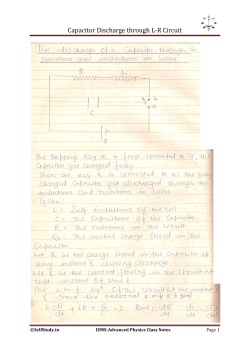 Capacitor Discharge through L-R Circuit
The discharge of a Capacitor through a
resistance and inductance in Series
R
L
C
The tapping key K is first connected to 'a', the
Capacitor get charged fully.
Then the key K is connected to b the fully
charged Capacitor get discharged through the
inductance and resistance in Series
Given
L = Self inductance of the coil
C = The Capacitance of the Capacitor
R = The resistance in the Circuit
= The initial charge stored in the
Capacitor.
Let be the charge stored in the Capacitor at
any instant t during discharge
Let i be the Current flowing in the circuit at
that instant of time t
The e.m.f eqn of the Circuit at the instant
( Since the external e.m.f is zero)
©SelfStudy.in HIMS-Advanced Physics Class Notes Page 1